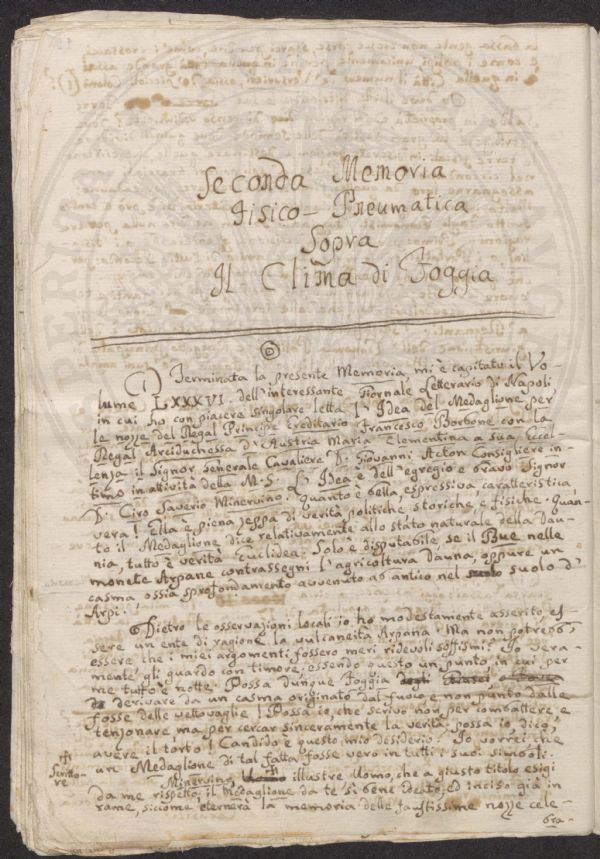 Seconda Memoria
Fisico-Pneumatica
Sopra
Il Clima di Foggia
(1) Terminata la presente Memoria, mi è capitato il Vo-
lume LXXXVI. dell'interessante Giornale Letterario di Napoli
in cui ho con piacere singolare letta l'Idea del Medaglione per
le nozze del Regal Principe Ereditario Francesco Borbone con la
Regal Arciduchessa d'Austria Maria Clementina a sua Eccel-
lenza il Signor Generale Cavaliere D. Giovanni Acton Consigliere in-
timo in attività della M. S. L'Idea è dell'egregio e bravo Signor
D. Ciro Saverio Minervino. Quanto è bella, espressiva, caratteristica,
vera! Ella è piena zeppa di verità politiche storiche, e fisiche. Quan-
to il Medaglione dice relativamente allo stato naturale della Dau-
nia, tutto è verità Euclidea. Solo è disputabile, se il Bue nelle
monete Arpane contrassegni l'agricoltura Dauna, oppure un
casma, ossia sprofondamento avvenuto ab antico nel suolo suolo d'
Arpi.
Dietro le osservazioni locali io ho modestamente asserito, es-
sere un ente di ragione la vulcaneità Arpana. Ma non potrebb'
essere che i miei argomenti fossero meri ridevoli soffismi? Io vera-
mente gli guardo con timore, essendo questo un punto, in cui per
me tutto è notte. Possa dunque Foggia
derivare da un casma originato dal fuoco, e non punto dalle
fosse delle vettovaglie! Possa io, che scrivo non per combattere e
tenzonare, ma per cercar sinceramente la verità, possa io dico,
avere il torto! Candido è questo mio desiderio. Io vorrei che
un Medaglione di tal fatta fosse vero in tutti i suoi simboli.
Scritto-
re
Minervino illustre Uomo, che a giusto titolo esigi
da me rispetto, il Medaglione da te sì bene ideato, ed inciso già in
rame, siccome eternerà la memoria delle faustissime nozze cele-
bra-